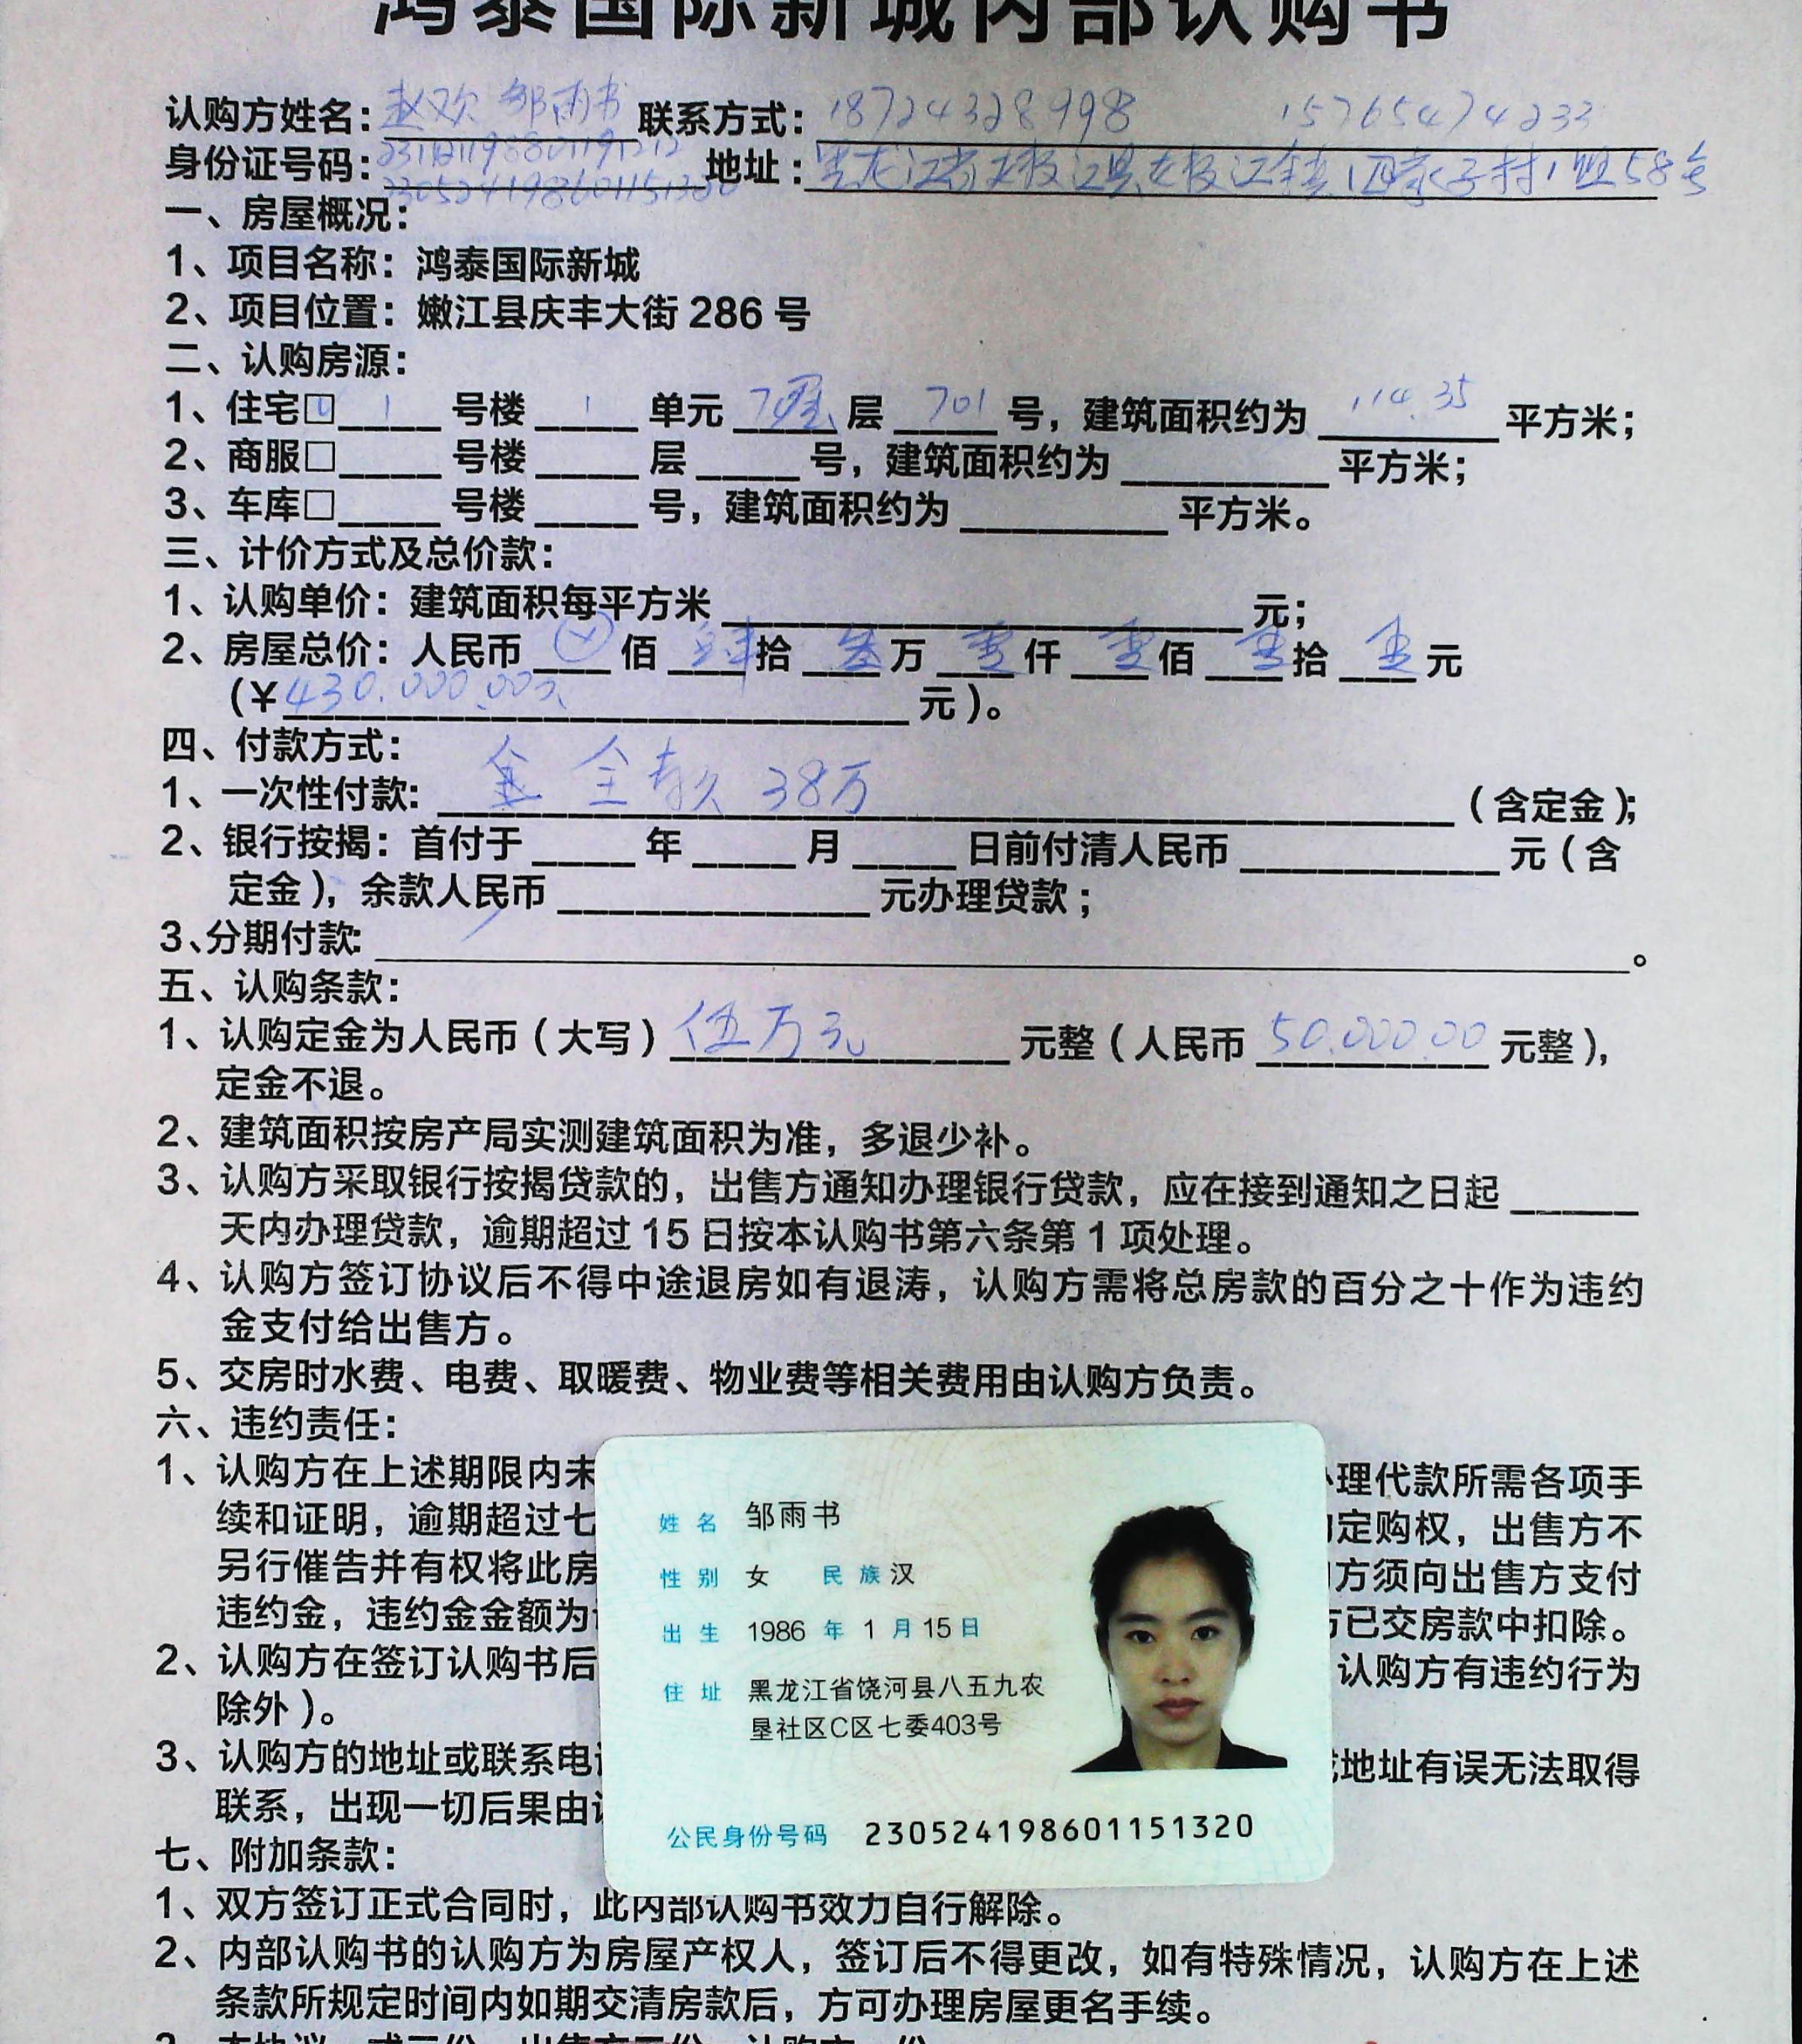 鸿泰国际新城内部认购书
认购方姓名：赵欢 邹雨书 联系方式：18724328998 15765474233
身份证号码： 地址：黑龙江省 江县 江镇四家子村1组58号
230524198601151320
一、房屋概况：
1、项目名称：鸿泰国际新城
2、项目位置：嫩江县庆丰大街 286 号
二、认购房源：
1、住宅□ 1 号楼 1 单元 7层 层 701 号，建筑面积约为 114.35 平方米；
2、商服□____号楼____层____号，建筑面积约为________平方米；
3、车库□____号楼____号，建筑面积约为________平方米。
三、计价方式及总价款：
1、认购单价：建筑面积每平方米____________________元；
2、房屋总价：人民币 ⊗ 佰 肆 拾 叁 万 零 仟 零 佰 零 拾 零 元
（¥430.000.00 元）。
四、付款方式：
1、一次性付款： 全款 38万 （含定金）；
2、银行按揭：首付于____年____月____日前付清人民币__________元（含
定金），余款人民币____________元办理贷款；
3、分期付款：____________________。
五、认购条款：
1、认购定金为人民币（大写）伍万元 元整（人民币 50.000.00 元整），
定金不退。
2、建筑面积按房产局实测建筑面积为准，多退少补。
3、认购方采取银行按揭贷款的，出售方通知办理银行贷款，应在接到通知之日起_____
天内办理贷款，逾期超过 15 日按本认购书第六条第 1 项处理。
4、认购方签订协议后不得中途退房如有退涛，认购方需将总房款的百分之十作为违约
金支付给出售方。
5、交房时水费、电费、取暖费、物业费等相关费用由认购方负责。
六、违约责任：
1、认购方在上述期限内未 理代款所需各项手
续和证明，逾期超过七 定购权，出售方不
另行催告并有权将此房 方须向出售方支付
违约金，违约金金额为 已交房款中扣除。
2、认购方在签订认购书后 认购方有违约行为
除外）。
3、认购方的地址或联系电 地址有误无法取得
联系，出现一切后果由
姓名 邹雨书
性别 女 民族 汉
出生 1986 年 1 月 15 日
住址 黑龙江省饶河县八五九农
垦社区C区七委403号
公民身份号码 230524198601151320
七、附加条款：
1、双方签订正式合同时，此内部认购书效力自行解除。
2、内部认购书的认购方为房屋产权人，签订后不得更改，如有特殊情况，认购方在上述
条款所规定时间内如期交清房款后，方可办理房屋更名手续。